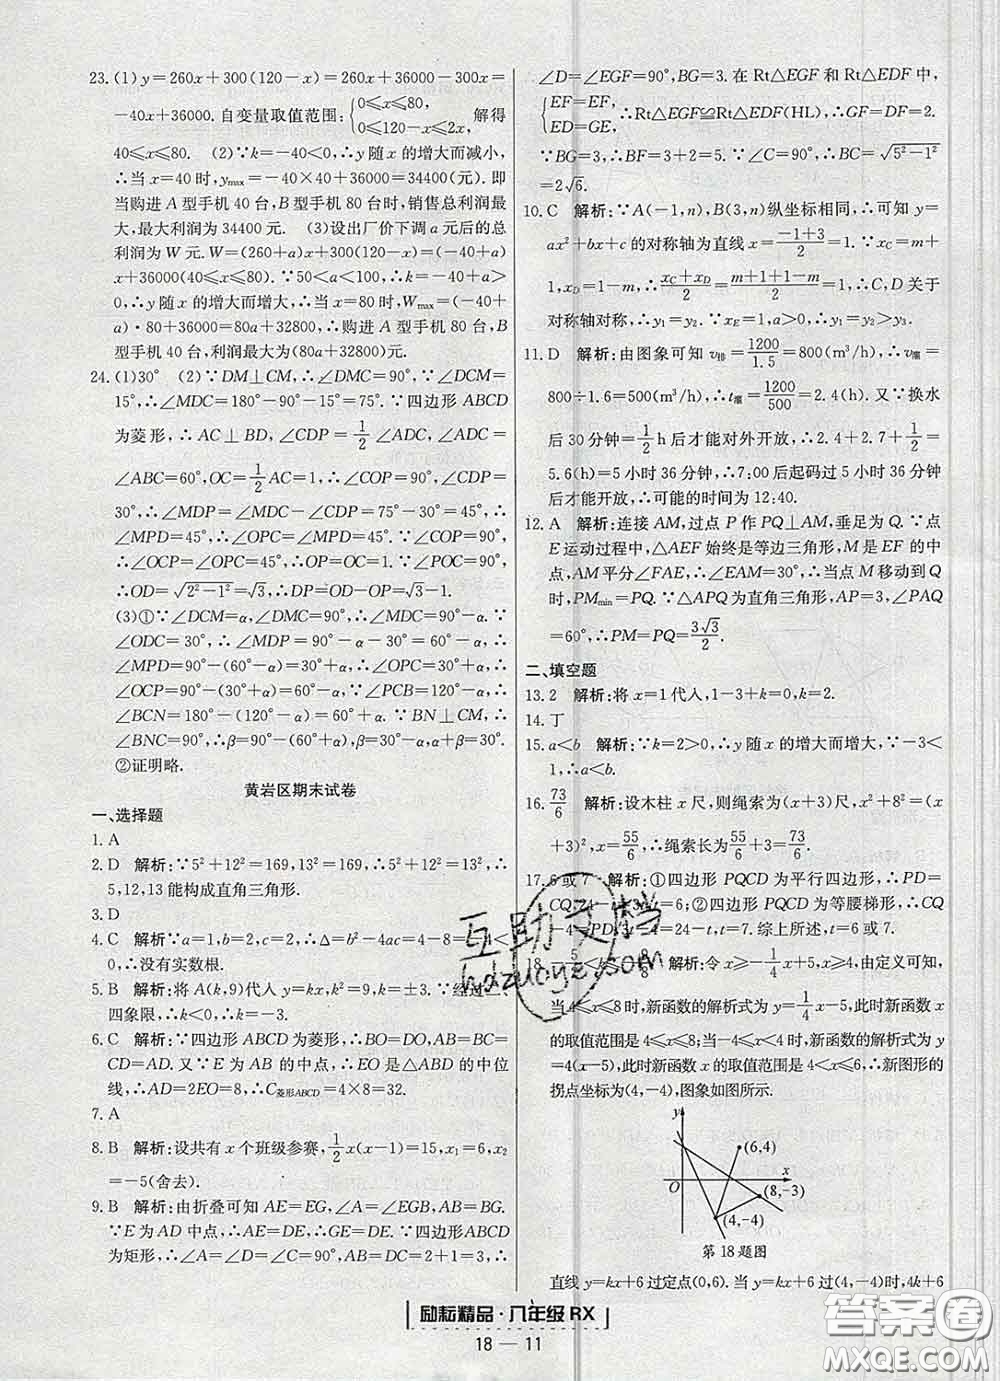 23. (1) y=260x+300(120-x)=260x+36000-300x=
-40x+36000. 自变量取值范围: {0≤x≤80, 0≤120-x≤2x, 解得
40≤x≤80. (2)∵k=-40<0,∴y 随 x 的增大而减小,
∴当 x=40 时,ymax=-40×40+36000=34400(元). 即
当购进 A 型手机 40 台,B 型手机 80 台时,销售总利润最
大,最大利润为 34400 元. (3)设出厂价下调 a 元后的总
利润为 W 元. W=(260+a)x+300(120-x)=(-40+a)
x+36000(40≤x≤80). ∵50<a<100,∴k=-40+a>
0,∴y 随 x 的增大而增大,∴当 x=80 时,Wmax=(-40+
a)·80+36000=80a+32800,∴购进 A 型手机 80 台,B
型手机 40 台,利润最大为(80a+32800)元.
24. (1)30° (2)∵DM⊥CM,∴∠DMC=90°,∵∠DCM=
15°,∴∠MDC=180°-90°-15°=75°. ∵四边形 ABCD
为菱形,∴AC⊥BD,∠CDP=1/2∠ADC,∠ADC=
∠ABC=60°,OC=1/2AC=1. ∵∠CDP=∠CDP=
30°,∴∠MDP=∠MDC-∠CDP=75°-30°=45°,
∴∠MPD=45°,∴∠OPC=∠MPD=45°. ∵∠COP=90°,
∴∠OCP=∠OPC=45°,∴OP=OC=1. ∵∠POC=90°,
∴OD=√(2²-1²)=√3,∴DP=OD-OP=√3-1.
(3)①∵∠DCM=α,∠DMC=90°,∴∠MDC=90°-α. ∵
∠ODC=30°,∴∠MDP=90°-α-30°=60°-α,∴
∠MPD=90°-(60°-α)=30°+α,∴∠OPC=30°+α,∴
∠OCP=90°-(30°+α)=60°-α. ∵∠PCB=120°-α,
∠BCN=180°-(120°-α)=60°+α. ∵BN⊥CM,∴
∠BNC=90°,∴β=90°-(60°+α)=30°-α,∴α+β=30°.
②证明略.
黄岩区期末试卷
一、选择题
1. A
2. D 解析:∵5²+12²=169,13²=169,∴5²+12²=13²,∴
5,12,13 能构成直角三角形.
3. D
4. C 解析:∵a=1,b=2,c=2,∴Δ=b²-4ac=4-8=-4<
0,∴没有实数根.
5. B 解析:将 A(k,9)代入 y=kx,k²=9,k=±3. ∵经过二、
四象限,∴k<0,∴k=-3.
6. C 解析:∵四边形 ABCD 为菱形,∴BO=OD,AB=BC=
CD=AD. 又∵E 为 AB 的中点,∴OE 是△ABD 的中位
线,∴AD=2EO=8,∴C菱形ABCD=4×8=32.
7. A
8. B 解析:设共有 x 个班级参赛,1/2x(x-1)=15,x₁=6,x₂
=-5(舍去).
9. B 解析:由折叠可知 AE=EG,∠A=∠EGB,AB=BG.
∵E 为 AD 中点,∴AE=DE,∴GE=DE. ∵四边形ABCD
为矩形,∴∠A=∠D=∠C=90°,AB=DC=2+1=3,∴
∠D=∠EGF=90°,BG=3. 在 Rt△EGF 和 Rt△EDF 中,
{EF=EF, ED=GE, ∴Rt△EGF≌Rt△EDF(HL),∴GF=DF=2.
∵BG=3,∴BF=3+2=5. ∵∠C=90°,∴BC=√(5²-1²)
=2√6.
10. C 解析:∵A(-1,n),B(3,n)纵坐标相同,∴可知 y=
ax²+bx+c 的对称轴为直线 x=(-1+3)/2=1. ∵xC=m+
1,xD=1-m,∴(xC+xD)/2=(m+1+1-m)/2=1,∴C,D 关于
对称轴对称,∴y₁=y₂. ∵xE=1,a>0,∴y₁=y₂>y₃.
11. D 解析:由图象可知 v排=1200/1.5=800(m³/h),∴v灌=
800÷1.6=500(m³/h),∴t灌=1200/500=2.4(h). 又∵换水
后 30 分钟=1/2h 后才能对外开放,∴2.4+2.7+1/2=
5.6(h)=5 小时 36 分钟,∴7:00 后起码过 5 小时 36 分钟
后才能开放,∴可能的时间为 12:40.
12. A 解析:连接 AM,过点 P 作 PQ⊥AM,垂足为 Q. ∵点
E 运动过程中,△AEF 始终是等边三角形,M 是 EF 的中
点,AM 平分∠FAE,∴∠EAM=30°,∴当点 M 移动到 Q
时,PMmin=PQ. ∵△APQ 为直角三角形,AP=3,∠PAQ
=60°,∴PM=PQ=3√3/2.
二、填空题
13. 2 解析:将 x=1 代入,1-3+k=0,k=2.
14. 丁
15. a<b 解析:∵k=2>0,∴y 随 x 的增大而增大,∵-3<
1,∴a<b.
16. 73/6 解析:设木柱 x 尺,则绳索为(x+3)尺,x²+8²=(x
+3)²,∴x=55/6,∴绳索长为55/6+3=73/6.
17. 6 或 7 解析:①四边形 PQCD 为平行四边形,∴PD=
=6;②四边形 PQCD 为等腰梯形,∴CQ
-4=PD,3t-4=24-t,t=7. 综上所述,t=6 或 7.
18. 解析:令 x≥-1/4x+5,由定义可知,
当 4≤x≤8 时,新函数的解析式为 y=1/4x-5,此时新函数 x
的取值范围是 4≤x≤8;当-4≤x<4 时,新函数的解析式为 y
=4(x-5),此时新函数 x 的取值范围是 4<x≤6,∴新图形的
拐点坐标为(4,-4),图象如图所示.
y
(6,4)
x
(8,-3)
(4,-4)
第 18 题图
直线 y=kx+6 过定点(0,6). 当 y=kx+6 过(4,-4)时,4k+6
励耘精品·八年级 RX
18 — 11
互助文档
hdzuoye.com
答案圈
MXQE.COM